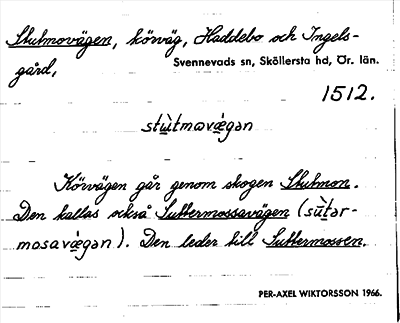 Stutmovägen, körväg, Haddebo och Ingels-
gård,
Svennevads sn, Sköllersta hd, Ör. län.
1512.
stù̱tmavæ̀gan
Körvägen går genom skogen Stutmon.
Den kallas också Suttermossavägen (sùt̲ər-
mosavæ̀gən). Den leder till Suttermossen.
PER-AXEL WIKTORSSON 1966.